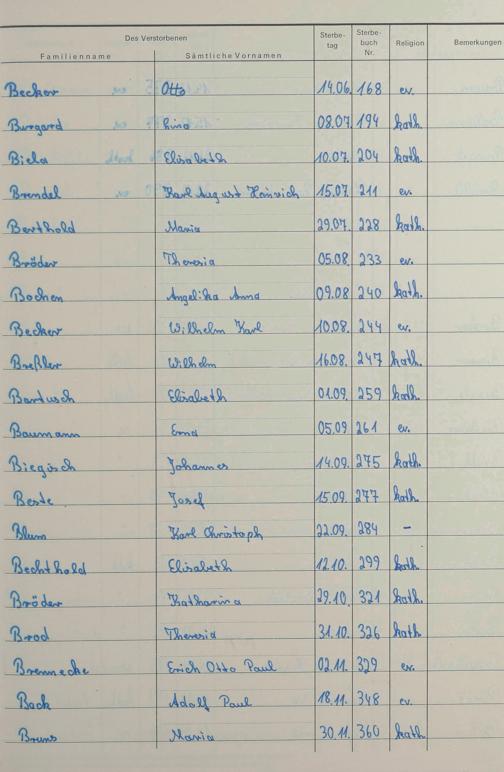 Des Verstorbenen
Familienname Sämtliche Vornamen Sterbe-tag Sterbe-buch Nr. Religion Bemerkungen
Becker Otto 14.06. 168 ev.
Burgard Lina 08.07. 194 kath.
Biela Elisabeth 10.07. 204 kath.
Brendel Karl August Heinrich 15.07. 211 ev.
Berthold Maria 29.07. 228 kath.
Bröder Theresia 05.08. 233 ev.
Bochen Angelika Anna 09.08 240 kath.
Becker Wilhelm Karl 10.08. 244 ev.
Breßler Wilhelm 16.08. 247 kath.
Bartusch Elisabeth 01.09. 259 kath.
Baumann Erna 05.09 261 ev.
Biegisch Johannes 14.09. 275 kath.
Beste Josef 15.09. 277 kath.
Blum Karl Christoph 22.09. 284 –
Bechthold Elisabeth 12.10. 299 kath.
Bröder Katharina 29.10. 321 kath.
Brod Theresia 31.10. 326 kath.
Brennecke Erich Otto Paul 02.11. 329 ev.
Bock Adolf Paul 18.11. 348 ev.
Bruns Maria 30.11. 360 kath.